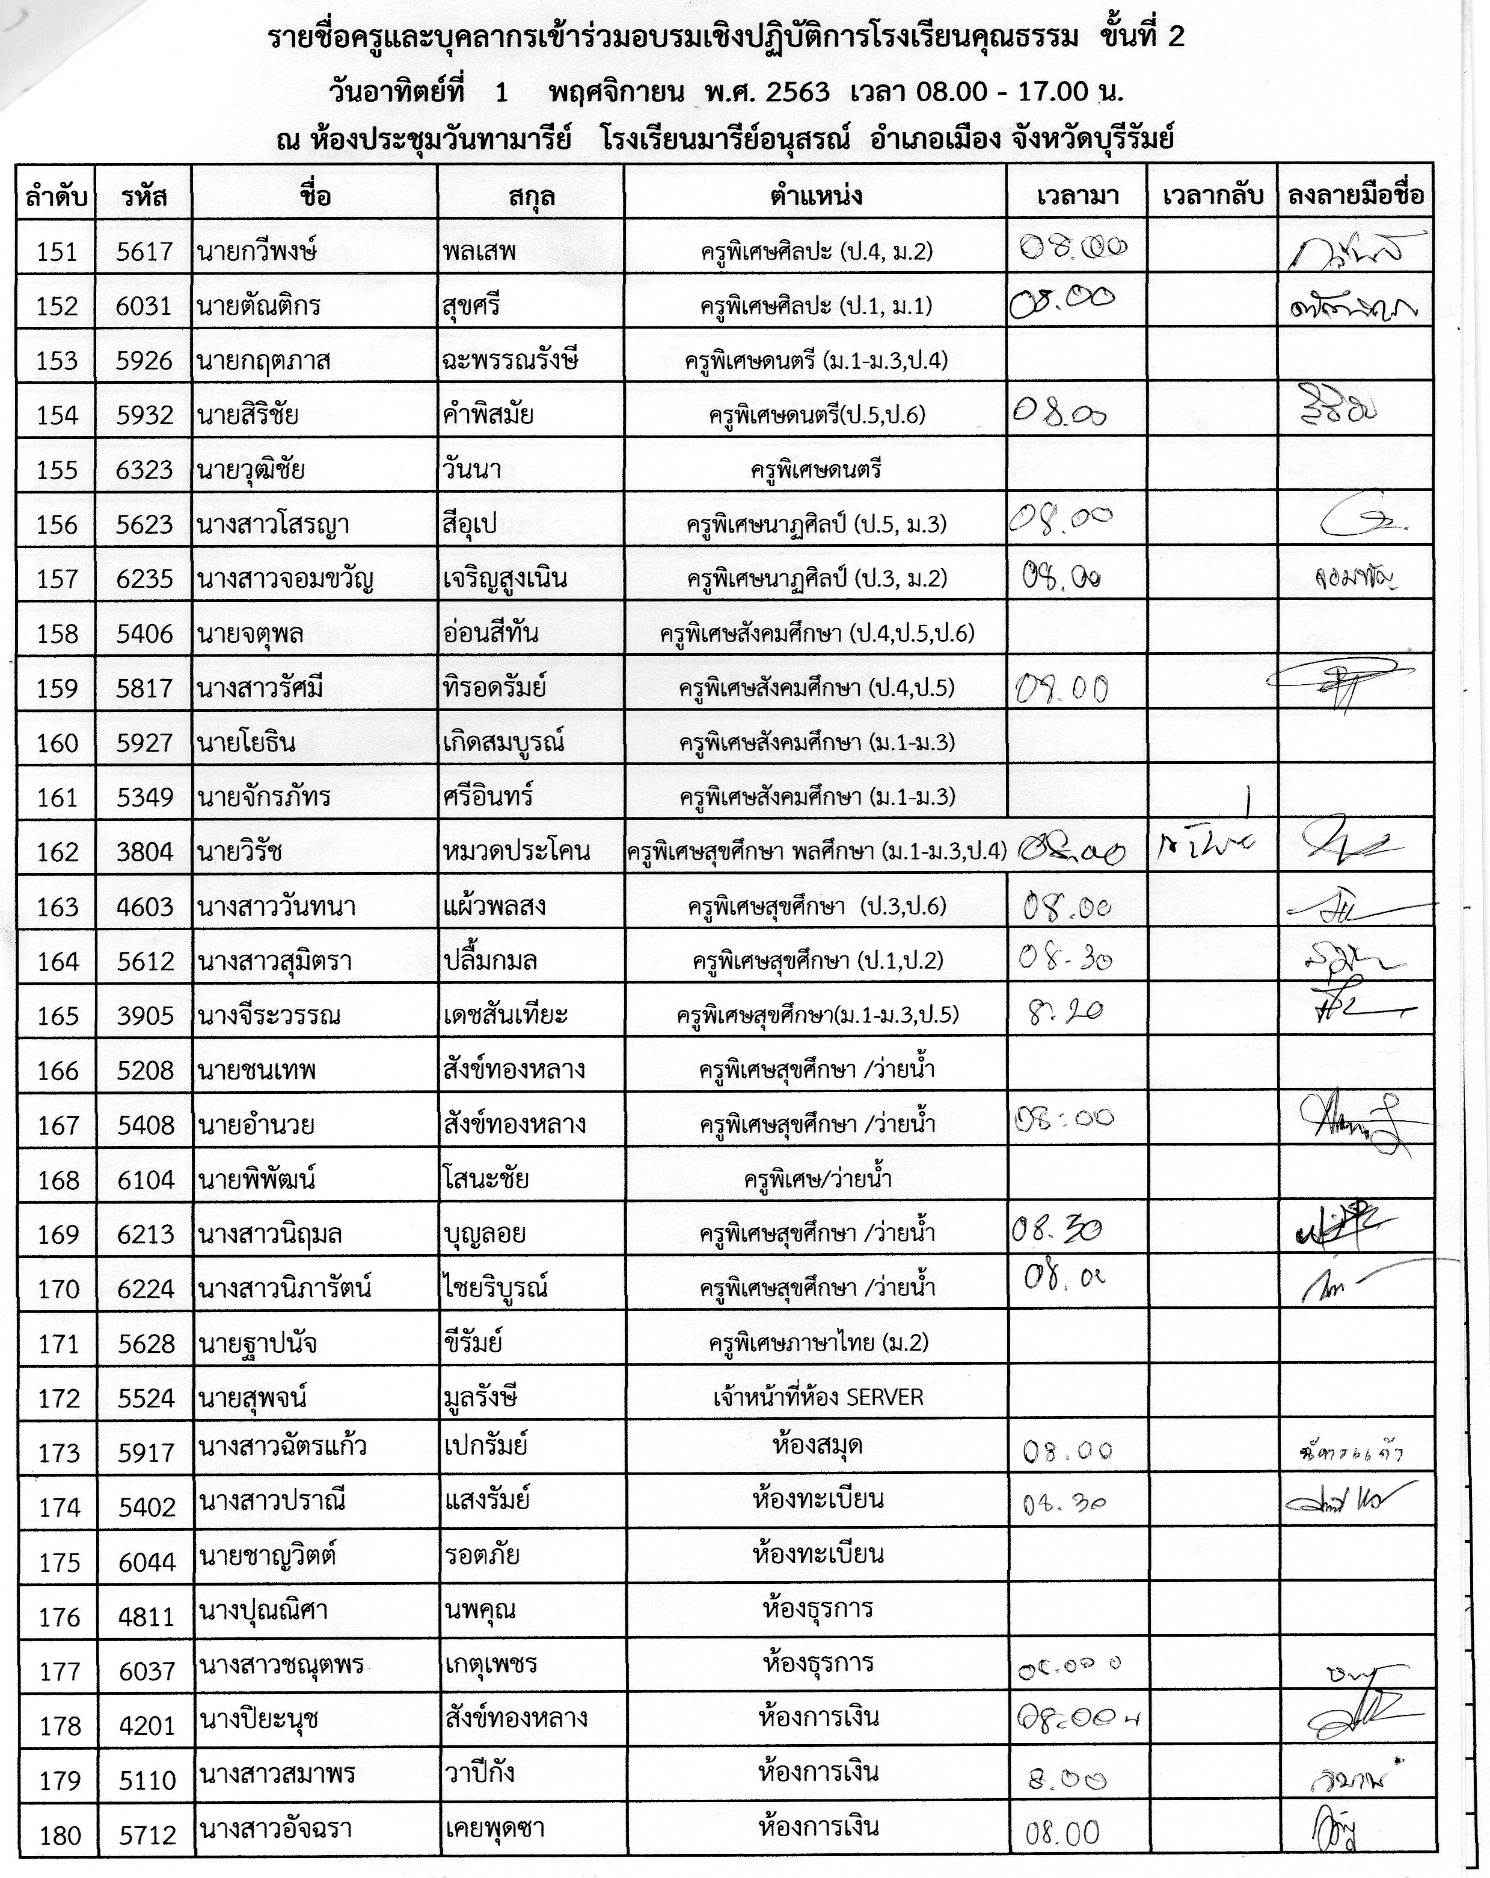 รายชื่อครูและบุคลากรเข้าร่วมอบรมเชิงปฏิบัติการโรงเรียนคุณธรรม ขั้นที่ 2
วันอาทิตย์ที่ 1 พฤศจิกายน พ.ศ. 2563 เวลา 08.00 - 17.00 น.
ณ ห้องประชุมวันทามารีย์ โรงเรียนมารีย์อนุสรณ์ อำเภอเมือง จังหวัดบุรีรัมย์
ลำดับ รหัส ชื่อ สกุล ตำแหน่ง เวลามา เวลากลับ ลงลายมือชื่อ
151 5617 นายกวีพงษ์ พลเสพ ครูพิเศษศิลปะ (ป.4, ม.2) 08.00
152 6031 นายตัณติกร สุขศรี ครูพิเศษศิลปะ (ป.1, ม.1) 08.00
153 5926 นายกฤตภาส ฉะพรรณรังษี ครูพิเศษดนตรี (ม.1-ม.3,ป.4)
154 5932 นายสิริชัย คำพิสมัย ครูพิเศษดนตรี(ป.5,ป.6) 08.00
155 6323 นายวุฒิชัย วันนา ครูพิเศษดนตรี
156 5623 นางสาวโสรญา สีอุเป ครูพิเศษนาฏศิลป์ (ป.5, ม.3) 08.00
157 6235 นางสาวจอมขวัญ เจริญสูงเนิน ครูพิเศษนาฏศิลป์ (ป.3, ม.2) 08.00 จอมขวัญ
158 5406 นายจตุพล อ่อนสีทัน ครูพิเศษสังคมศึกษา (ป.4,ป.5,ป.6)
159 5817 นางสาวรัศมี ทิรอดรัมย์ ครูพิเศษสังคมศึกษา (ป.4,ป.5) 08.00
160 5927 นายโยธิน เกิดสมบูรณ์ ครูพิเศษสังคมศึกษา (ม.1-ม.3)
161 5349 นายจักรภัทร ศรีอินทร์ ครูพิเศษสังคมศึกษา (ม.1-ม.3)
162 3804 นายวิรัช หมวดประโคน ครูพิเศษสุขศึกษา พลศึกษา (ม.1-ม.3,ป.4) 08.00
163 4603 นางสาววันทนา แผ้วพลสง ครูพิเศษสุขศึกษา (ป.3,ป.6) 08.00
164 5612 นางสาวสุมิตรา ปลื้มกมล ครูพิเศษสุขศึกษา (ป.1,ป.2) 08.30
165 3905 นางจีระวรรณ เดชสันเทียะ ครูพิเศษสุขศึกษา(ม.1-ม.3,ป.5) 8.20
166 5208 นายชนเทพ สังข์ทองหลาง ครูพิเศษสุขศึกษา /ว่ายน้ำ
167 5408 นายอำนวย สังข์ทองหลาง ครูพิเศษสุขศึกษา /ว่ายน้ำ 08:00
168 6104 นายพิพัฒน์ โสนะชัย ครูพิเศษ/ว่ายน้ำ
169 6213 นางสาวนิฤมล บุญลอย ครูพิเศษสุขศึกษา /ว่ายน้ำ 08.30
170 6224 นางสาวนิภารัตน์ ไชยริบูรณ์ ครูพิเศษสุขศึกษา /ว่ายน้ำ 08.00
171 5628 นายฐาปนัจ ขีรัมย์ ครูพิเศษภาษาไทย (ม.2)
172 5524 นายสุพจน์ มูลรังษี เจ้าหน้าที่ห้อง SERVER
173 5917 นางสาวฉัตรแก้ว เปกรัมย์ ห้องสมุด 08.00 ฉัตรแก้ว
174 5402 นางสาวปราณี แสงรัมย์ ห้องทะเบียน 08.30
175 6044 นายชาญวิตต์ รอตภัย ห้องทะเบียน
176 4811 นางปุณณิศา นพคุณ ห้องธุรการ
177 6037 นางสาวชณุตพร เกตุเพชร ห้องธุรการ
178 4201 นางปิยะนุช สังข์ทองหลาง ห้องการเงิน 08:00 น
179 5110 นางสาวสมาพร วาปีกัง ห้องการเงิน 8.00
180 5712 นางสาวอัจฉรา เคยพุดซา ห้องการเงิน 08.00